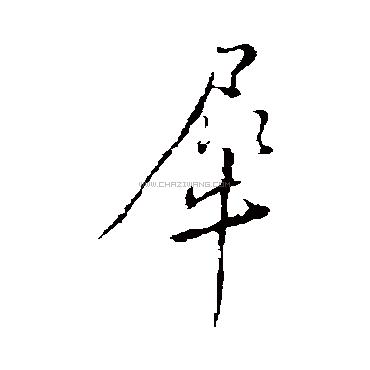 犀
WWW.CHAZIWANG.COM